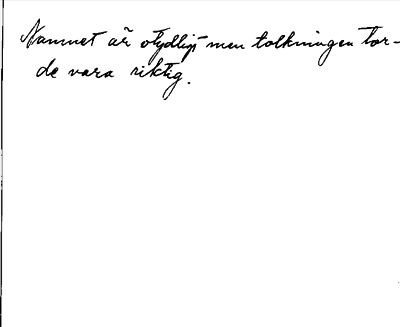 Namnet är otydligt men tolkningen tor-
de vara riktig.